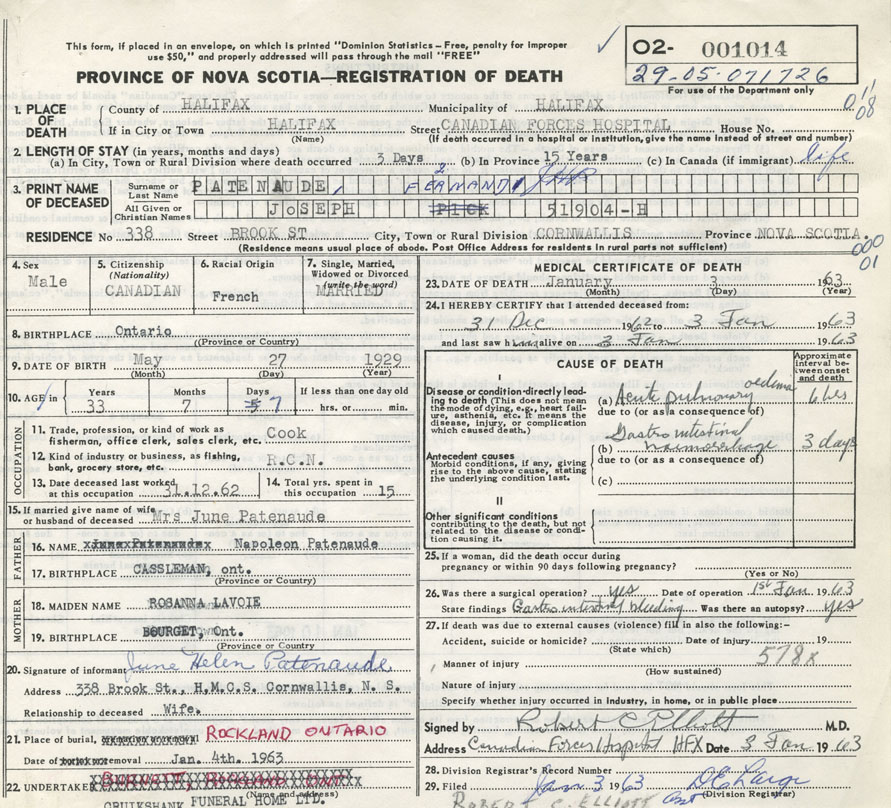 This form, if placed in an envelope, on which is printed "Dominion Statistics – Free, penalty for improper
use $50," and properly addressed will pass through the mail "FREE"
PROVINCE OF NOVA SCOTIA—REGISTRATION OF DEATH
O2- 001014
29-05-071726
For use of the Department only
1. PLACE OF DEATH County of HALIFAX Municipality of HALIFAX
If in City or Town HALIFAX Street CANADIAN FORCES HOSPITAL House No.
(Name) (If death occurred in a hospital or institution, give the name instead of street and number)
011
08
2. LENGTH OF STAY (in years, months and days)
(a) In City, Town or Rural Division where death occurred 3 Days (b) In Province 15 Years (c) In Canada (if immigrant) life
3. PRINT NAME OF DECEASED Surname or Last Name PATENAUDE, FERNAND
All Given or Christian Names JOSEPH PICK 51904-H
RESIDENCE No 338 Street BROOK ST City, Town or Rural Division CORNWALLIS Province NOVA SCOTIA
(Residence means usual place of abode. Post Office Address for residents in rural parts not sufficient)
000
01
4. Sex
Male
5. Citizenship (Nationality)
CANADIAN
6. Racial Origin
French
7. Single, Married, Widowed or Divorced (write the word)
MARRIED
8. BIRTHPLACE Ontario
(Province or Country)
9. DATE OF BIRTH May 27 1929
(Month) (Day) (Year)
10. AGE in Years Months Days If less than one day old
33 7 7 hrs. or min.
OCCUPATION
11. Trade, profession, or kind of work as fisherman, office clerk, sales clerk, etc. Cook
12. Kind of industry or business, as fishing, bank, grocery store, etc. R.C.N.
13. Date deceased last worked at this occupation 31.12.62 14. Total yrs. spent in this occupation 15
15. If married give name of wife or husband of deceased Mrs June Patenaude
FATHER
16. NAME Napoleon Patenaude
17. BIRTHPLACE CASSLEMAN, ont.
(Province or Country)
MOTHER
18. MAIDEN NAME ROSANNA LAVOIE
19. BIRTHPLACE BOURGET, Ont.
(Province or Country)
20. Signature of informant June Helen Patenaude
Address 338 Brook St., H.M.C.S. Cornwallis, N. S.
Relationship to deceased Wife.
21. Place of burial, ROCKLAND ONTARIO
Date of removal Jan. 4th. 1963
22. UNDERTAKER
(Name and address)
CRUIKSHANK FUNERAL HOME LTD.
MEDICAL CERTIFICATE OF DEATH
23. DATE OF DEATH January 3 1963
(Month) (Day) (Year)
24. I HEREBY CERTIFY that I attended deceased from:
31 Dec 1962 to 3 Jan 1963
and last saw him alive on 3 Jan 1963
CAUSE OF DEATH
Approximate interval between onset and death
I
Disease or condition directly leading to death (This does not mean the mode of dying, e.g., heart failure, asthenia, etc. It means the disease, injury, or complication which caused death.)
(a) Acute pulmonary oedema 6 hrs
due to (or as a consequence of)
Antecedent causes
Morbid conditions, if any, giving rise to the above cause, stating the underlying condition last.
(b) Gastro intestinal haemorrhage 3 days
due to (or as a consequence of)
(c)
II
Other significant conditions
contributing to the death, but not related to the disease or condition causing it.
25. If a woman, did the death occur during pregnancy or within 90 days following pregnancy?
(Yes or No)
26. Was there a surgical operation? yes Date of operation 1st Jan 1963
State findings Gastro intestinal bleeding Was there an autopsy? yes
27. If death was due to external causes (violence) fill in also the following:—
Accident, suicide or homicide? Date of injury 19
(State which)
Manner of injury 578x
(How sustained)
Nature of injury
Specify whether injury occurred in Industry, in home, or in public place
Signed by Robert C Elliott M.D.
Address Canadian Forces Hospital HFX Date 3 Jan 1963
28. Division Registrar's Record Number
29. Filed Jan 3 1963
(Division Registrar)
ROBERT C. ELLIOTT